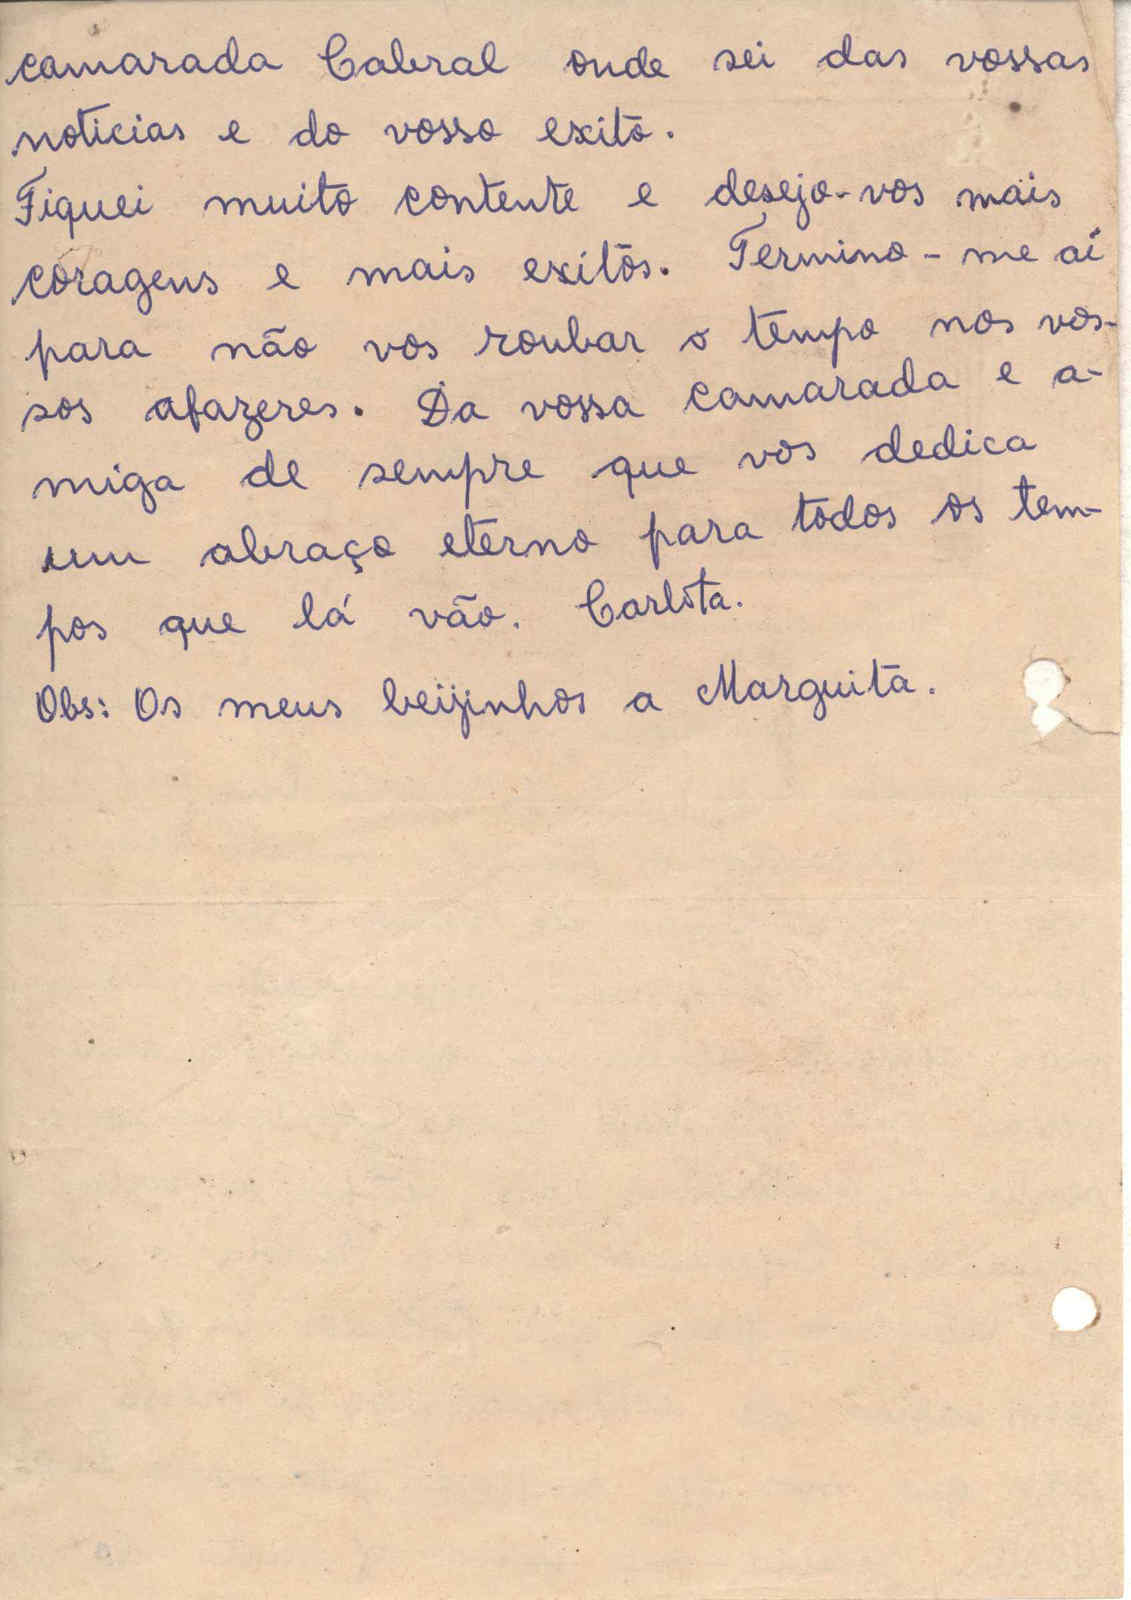 camarada Cabral onde sei das vossas
noticias e do vosso exito.
Fiquei muito contente e desejo-vos mais
coragens e mais exitos. Termino-me aí
para não vos roubar o tempo nos vos-
sos afazeres. Da vossa camarada e a-
miga de sempre que vos dedica
um abraço eterno para todos os tem-
pos que lá vão. Carlota.
Obs: Os meus beijinhos a Marguita.